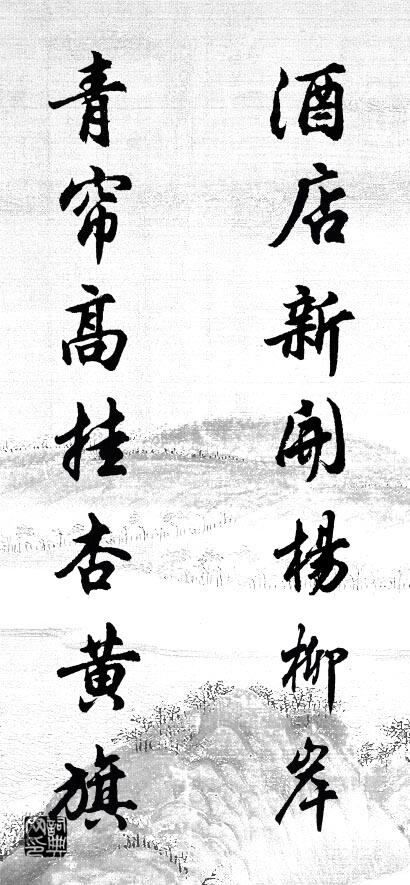 酒店新開楊柳岸
青帘高挂杏黄旗